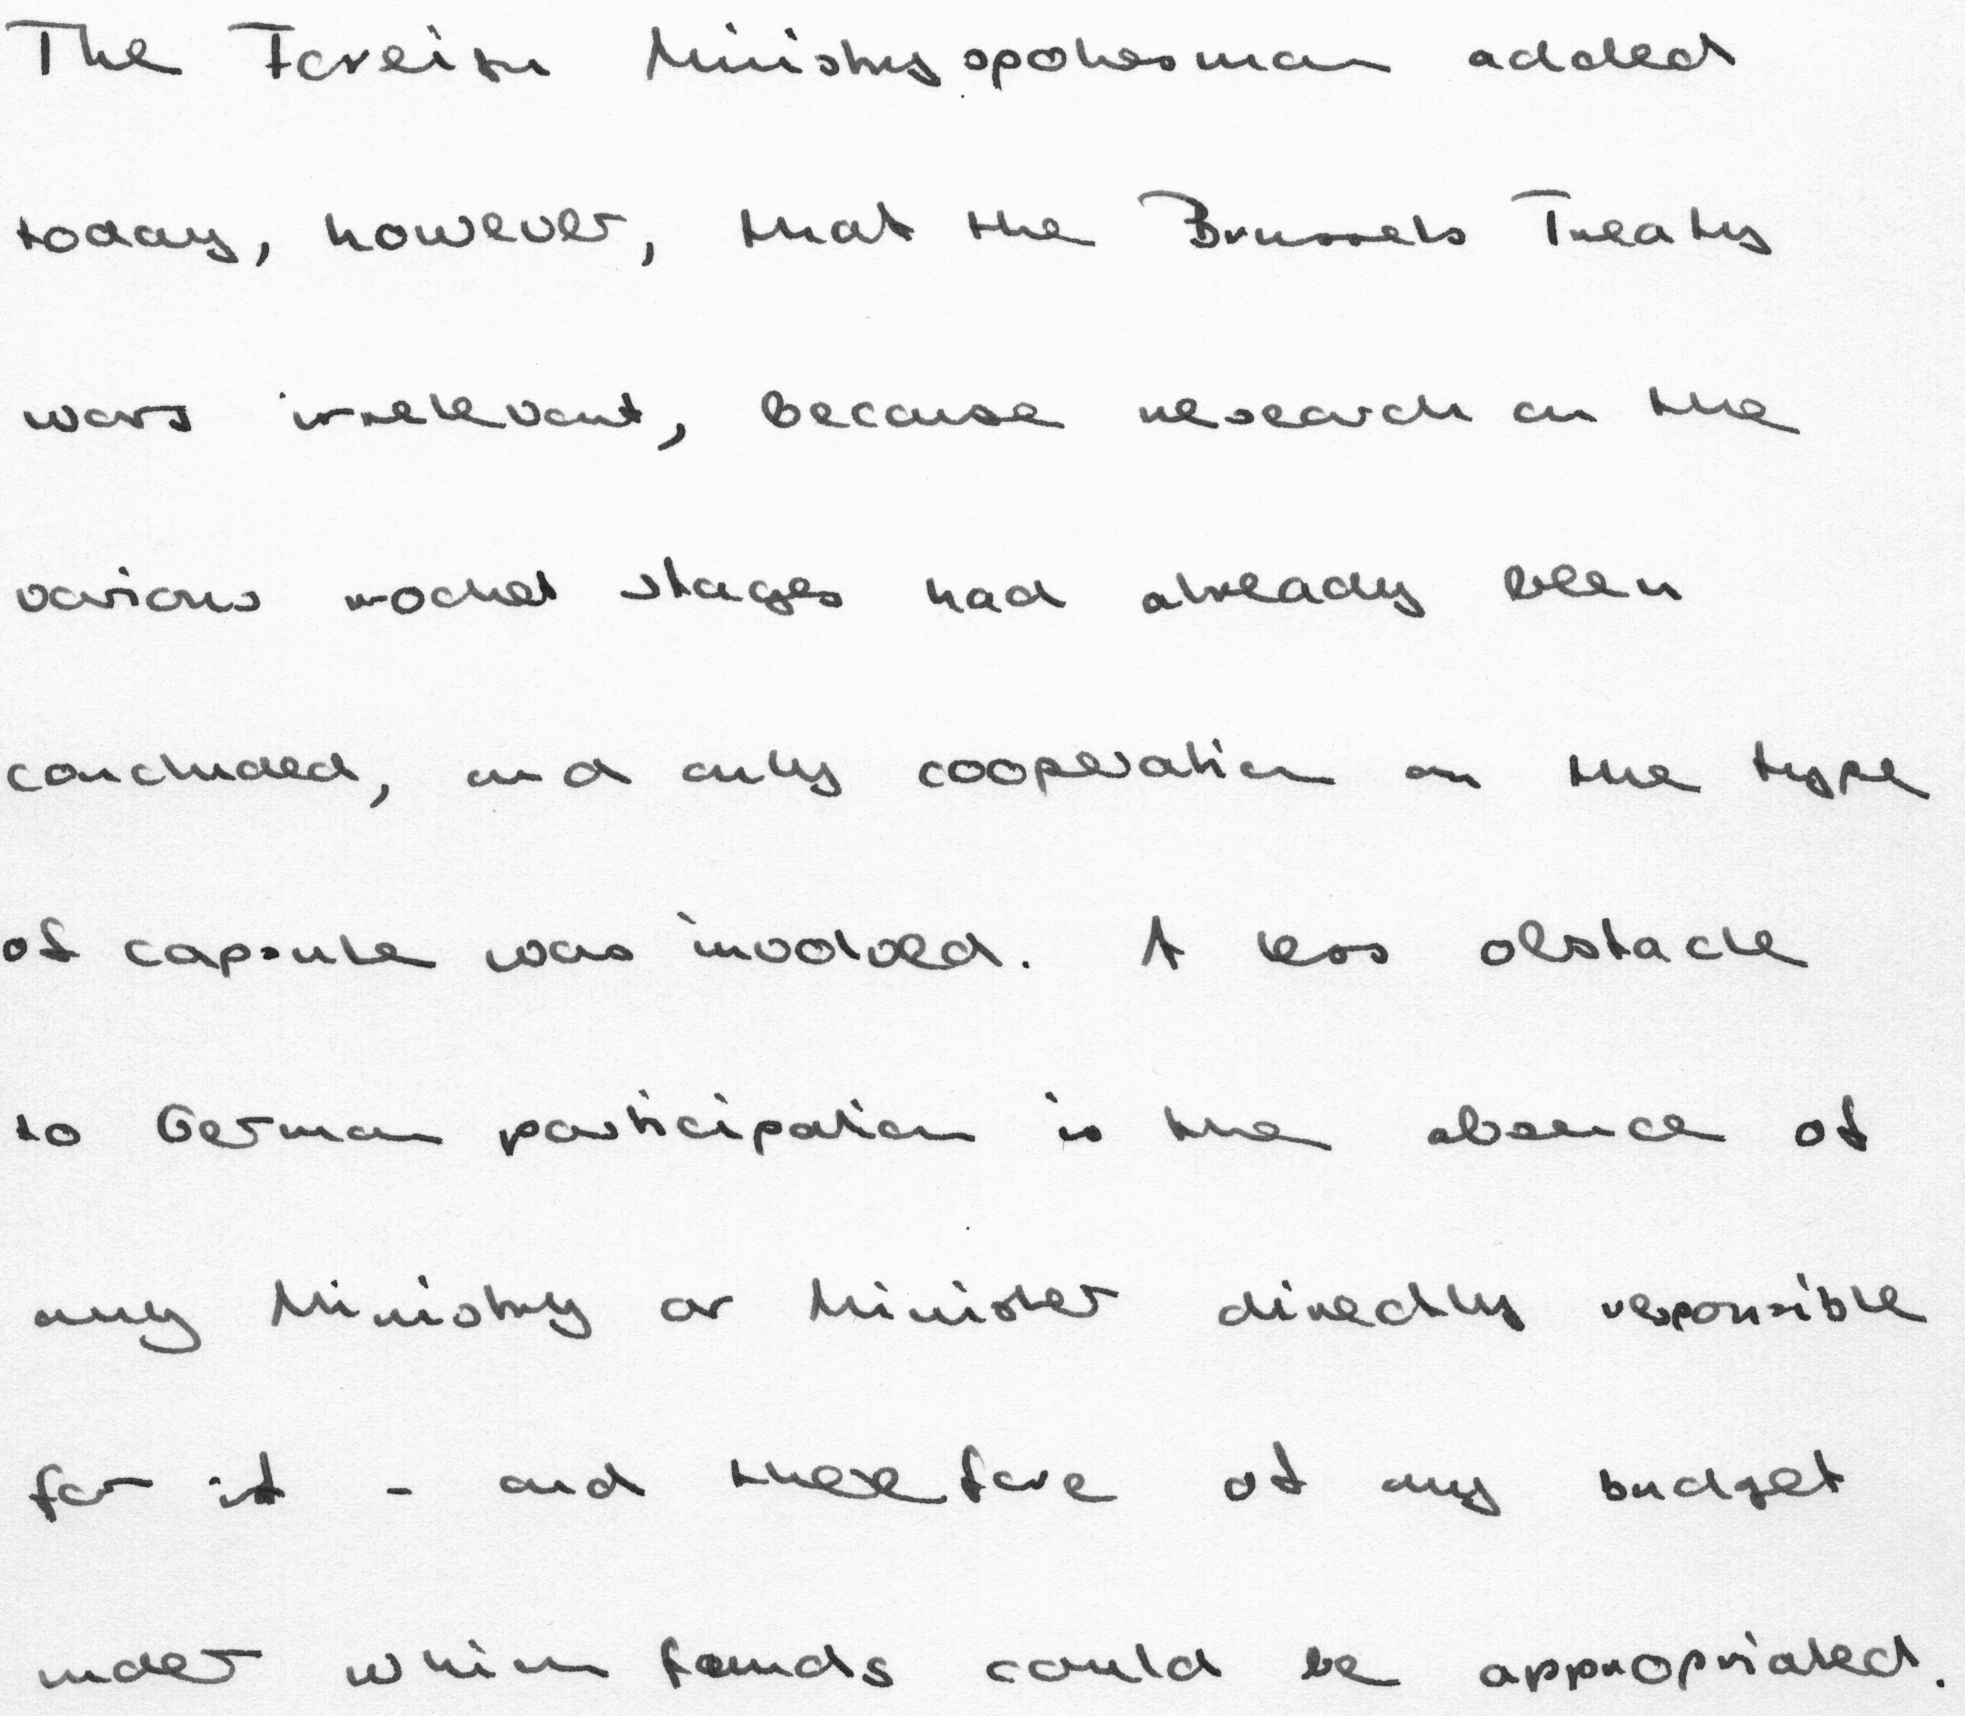 The Foreign Ministry spokesman added
today, however, that the Brussels Treaty
was irrelevant, because research on the
various rocket stages had already been
concluded, and only cooperation on the type
of capsule was involved. A less obstacle
to German participation is the absence of
any Ministry or Minister directly responsible
for it - and therefore of any budget
under which funds could be appropriated.